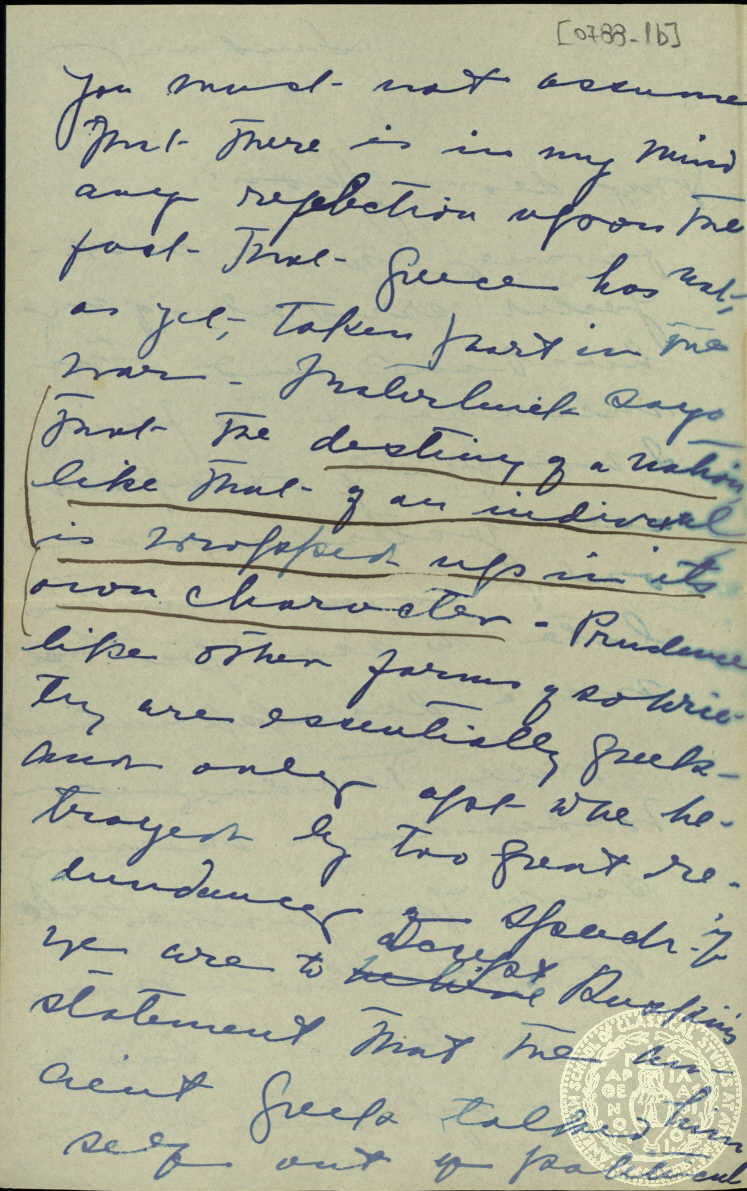 [0788-1b]
You must not assume
that there is in my mind
any reflection upon the
fact that Greece has not,
as yet, taken part in the
war - Maeterlinck says
that the destiny of a nation
like that of an individual
is wrapped up in its
own character - Prudence
like other forms of sobrie-
ty are essentially Greek -
and only apt be-
trayed by too great re-
dundancy of speech - if
we are to accept Ruskin's
statement that the an-
cient Greek talked him
self out of political